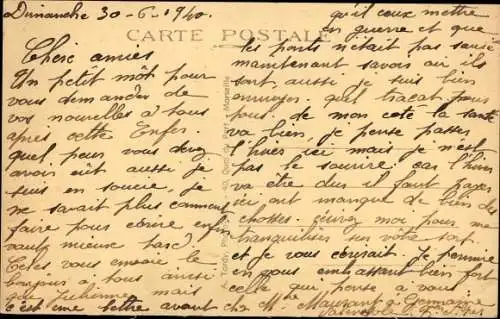 Dimanche 30-6-1940.
CARTE POSTALE
Chère amies
Un petit môt pour
vous demander de
vos nouvelles à tous
après cette Enfer.
quel peur vous devez
avoir eut aussi je
suis en soucie, je
ne savait plus comment
faire pour écrire enfin
vaut mieux tard.
vous envoie le
bonjour à tous ainsi
que Julienne mais
c'est une lettre avant
qu'il ceux mettre
en guerre et que
les ponts n'était pas sauté
maintenant savoir où ils
sont, aussi je suis bien
ennuyer. quel tracat pour
vous. de mon coté la santé
va bien, je pense passer
l'hiver ici mais je n'est
pas le sourire car l'hiver
va être dur il faut payer
ici ont manque de bien des
chosses. écrivez moi pour me
tranquiliser sur vôtre sort
et je vous écrirait. Je termine
en vous embrassant bien fort
celle qui pense à vous
che Mme Germaine
Marseille